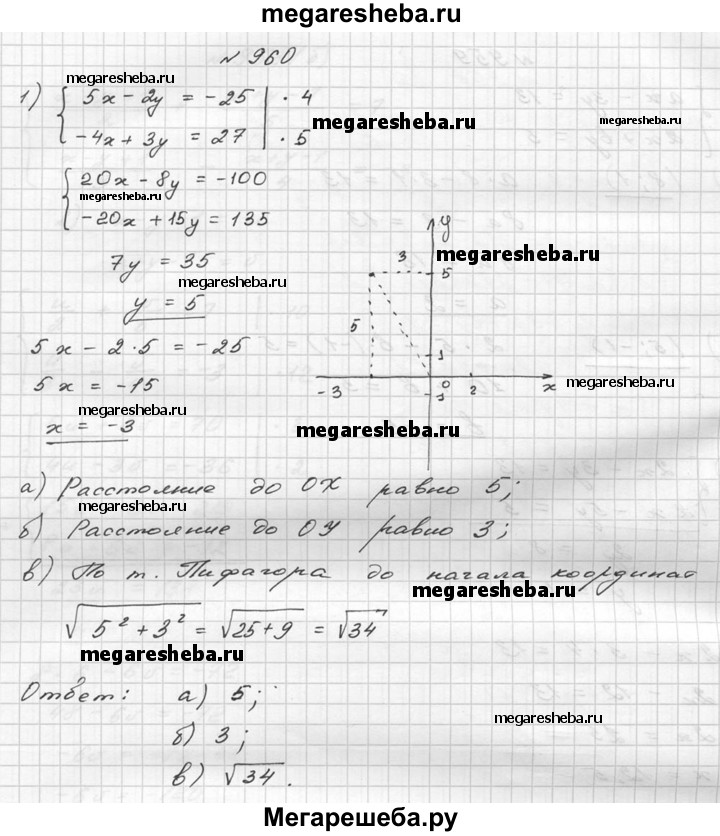 megaresheba.ru
№ 960
megaresheba.ru
1) { 5x - 2y = -25 | · 4
megaresheba.ru
megaresheba.ru
-4x + 3y = 27 | · 5
{ 20x - 8y = -100
megaresheba.ru
-20x + 15y = 135
y
megaresheba.ru
7y = 35
3
5
megaresheba.ru
y = 5
5
5x - 2·5 = -25
1
5x = -15
-3 0 2 x
-1
megaresheba.ru
megaresheba.ru
x = -3
megaresheba.ru
а) Расстояние до OX равно 5;
megaresheba.ru
б) Расстояние до OY равно 3;
в) По т. Пифагора до начала координат
megaresheba.ru
√5² + 3² = √25+9 = √34
megaresheba.ru
Ответ: а) 5;
megaresheba.ru
б) 3;
в) √34.
Мегарешеба.ру